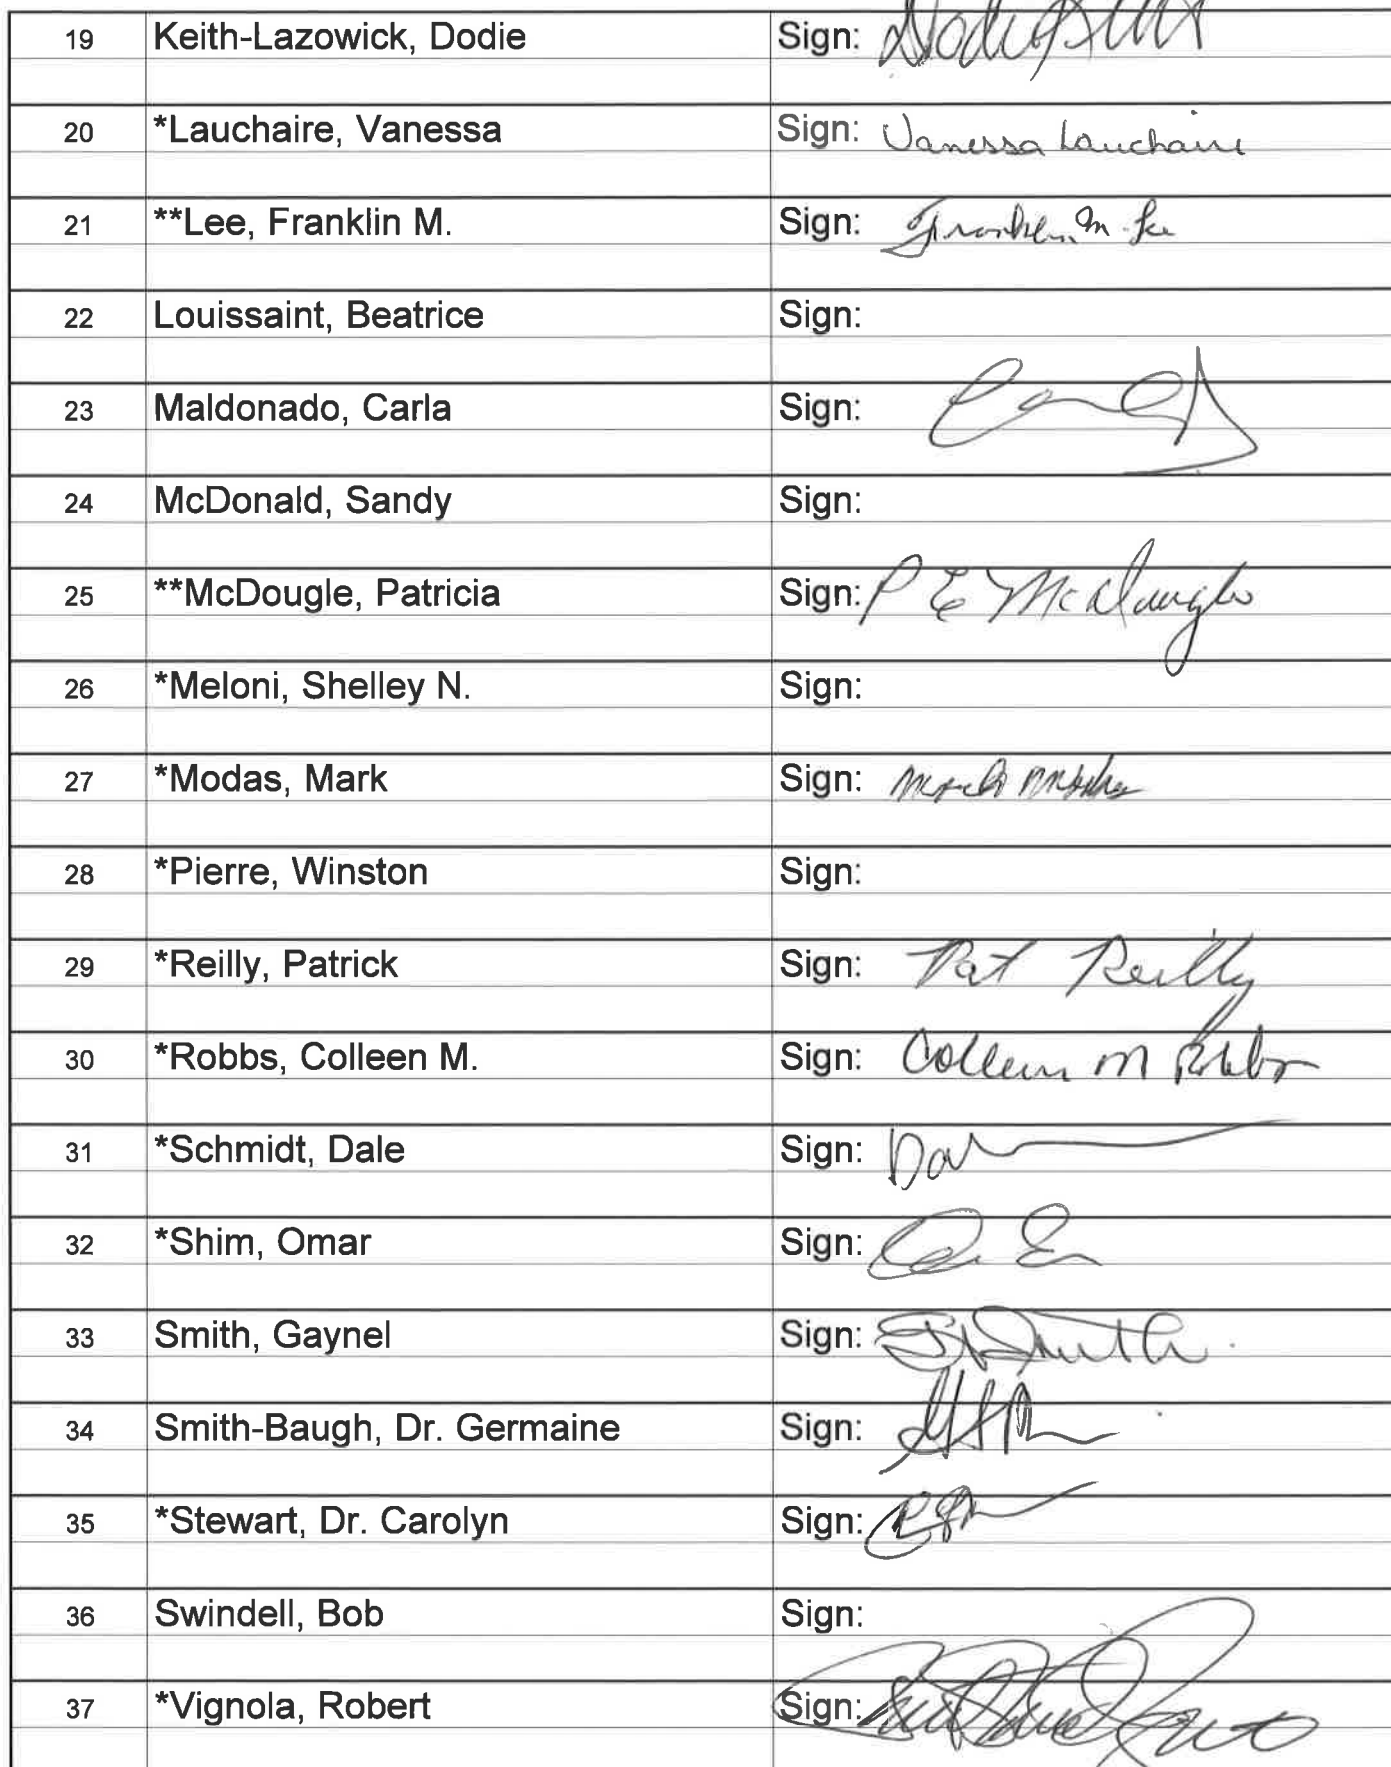 19 Keith-Lazowick, Dodie Sign:
20 *Lauchaire, Vanessa Sign: Vanessa Lauchaire
21 **Lee, Franklin M. Sign: Franklin M. Lee
22 Louissaint, Beatrice Sign:
23 Maldonado, Carla Sign:
24 McDonald, Sandy Sign:
25 **McDougle, Patricia Sign: P E McDougle
26 *Meloni, Shelley N. Sign:
27 *Modas, Mark Sign: Mark Modas
28 *Pierre, Winston Sign:
29 *Reilly, Patrick Sign: Pat Reilly
30 *Robbs, Colleen M. Sign: Colleen M Robbs
31 *Schmidt, Dale Sign:
32 *Shim, Omar Sign:
33 Smith, Gaynel Sign:
34 Smith-Baugh, Dr. Germaine Sign:
35 *Stewart, Dr. Carolyn Sign:
36 Swindell, Bob Sign:
37 *Vignola, Robert Sign: